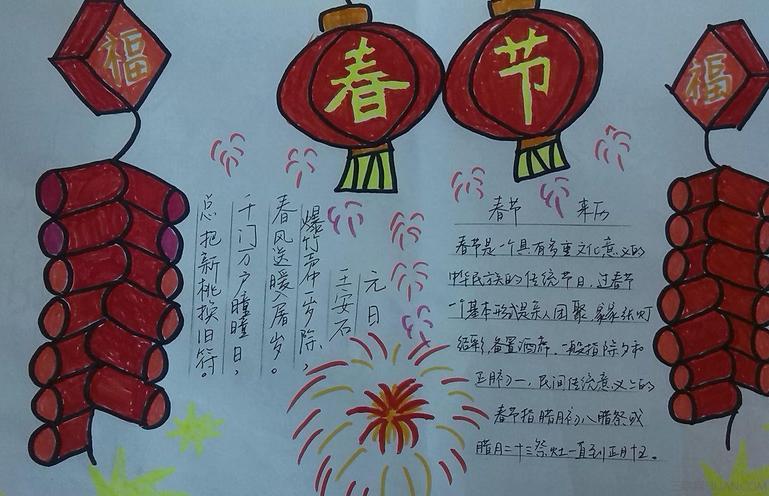 福
春
节
福
元日
王安石
爆竹声中岁除,
春风送暖入屠岁。
千门万户瞳瞳日,
总把新桃换旧符。
春节 来历
春节是一个具有多重文化意义的
中华民族的传统节日,过春节
一个基本形式是亲人团聚,家家张灯
结彩,备置酒席。一般指除夕和
正月初一,民间传统意义上的
春节指腊月初八腊祭或
腊月二十三祭灶一直到正月十五。